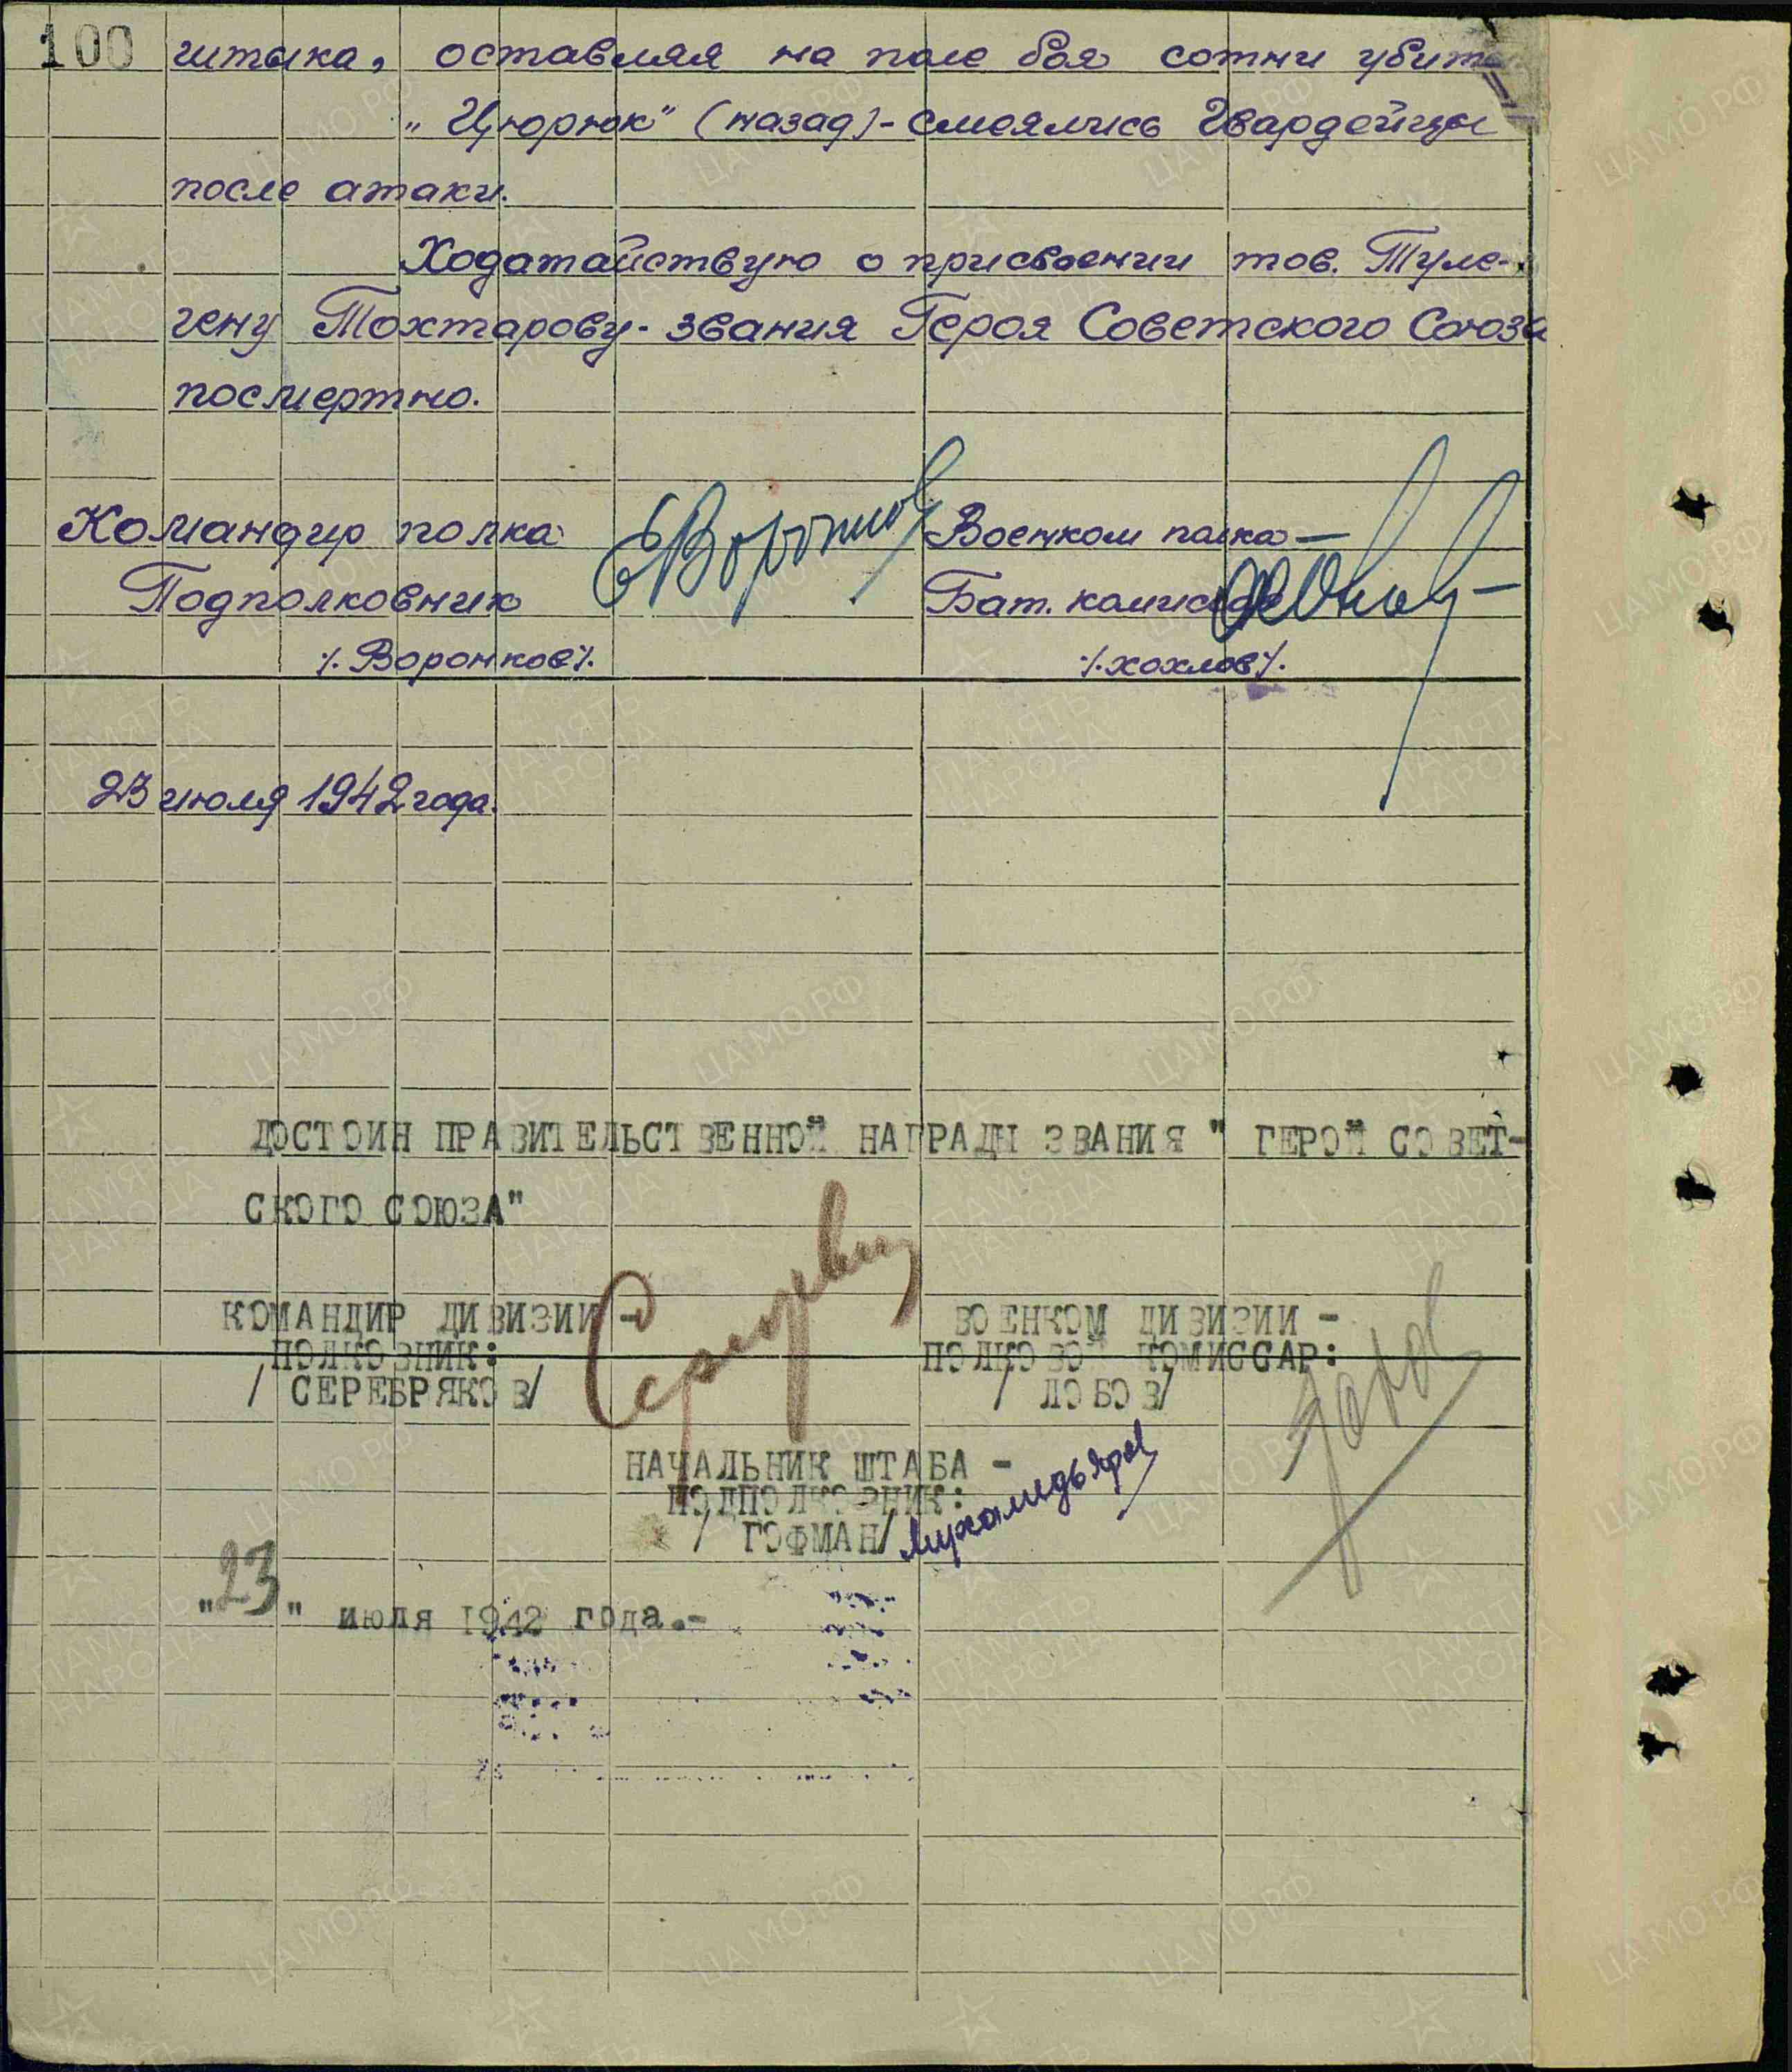 100 штыка, оставляя на поле боя сотни убит
„Цюрюк" (назад) - смеялись Гвардейцы
после атаки.
Ходатайствую о присвоении тов. Туле-
гену Тохтарову - звания Героя Советского Союза
посмертно.
Командир полка Военком полка —
Подполковник Бат. комиссар
/. Воронков /. /. Хохлов /.
23 июля 1942 года.
ДОСТОИН ПРАВИТЕЛЬСТВЕННОЙ НАГРАДЫ ЗВАНИЯ " ГЕРОЙ СОВЕТ-
СКОГО СОЮЗА"
КОМАНДИР ДИВИЗИИ - ВОЕНКОМ ДИВИЗИИ -
ПОЛКОВНИК: ПОЛКОВОЙ КОМИССАР:
/ СЕРЕБРЯКОВ/ / ЛОБОВ/
НАЧАЛЬНИК ШТАБА -
ПОДПОЛКОВНИК:
/ ГОФМАН/
"23" июля 1942 года.-
ЦАМО РФ
ПАМЯТЬ НАРОДА